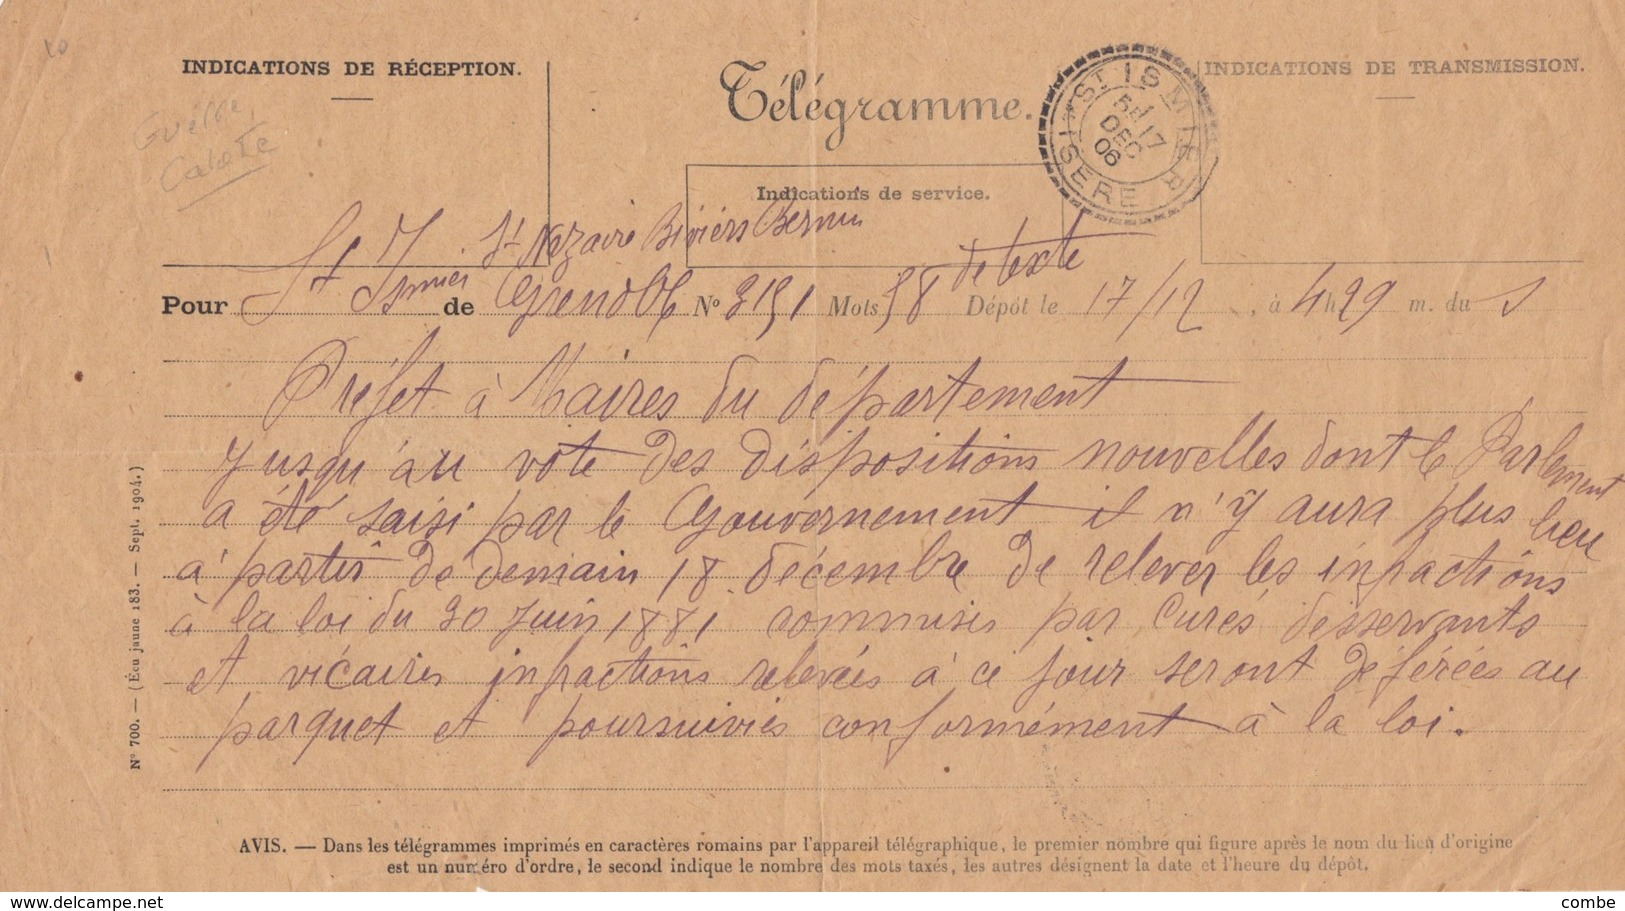 INDICATIONS DE RÉCEPTION.
Télégramme.
INDICATIONS DE TRANSMISSION.
ST ISMIER
17
DEC
06
ISERE
Indications de service.
St Nazaire Biviers Bernin
de texte
Pour St Ismier de Grenoble N° 3151 Mots 58 Dépôt le 17/12, à 4h 29 m. du s
Préfet à Maires du département
Jusqu'au vote des dispositions nouvelles dont le Parlement
a été saisi par le Gouvernement il n'y aura plus lieu
à partir de demain 18 décembre de relever les infractions
à la loi du 30 Juin 1881 commises par Curés desservants
et vicaires infractions relevées à ce jour seront déférées au
parquet et poursuivies conformément à la loi.
N° 700. — (Écu jaune 183. — Sept. 1904.)
AVIS. — Dans les télégrammes imprimés en caractères romains par l'appareil télégraphique, le premier nombre qui figure après le nom du lieu d'origine
est un numéro d'ordre, le second indique le nombre des mots taxés, les autres désignent la date et l'heure du dépôt.
www.delcampe.net
combe